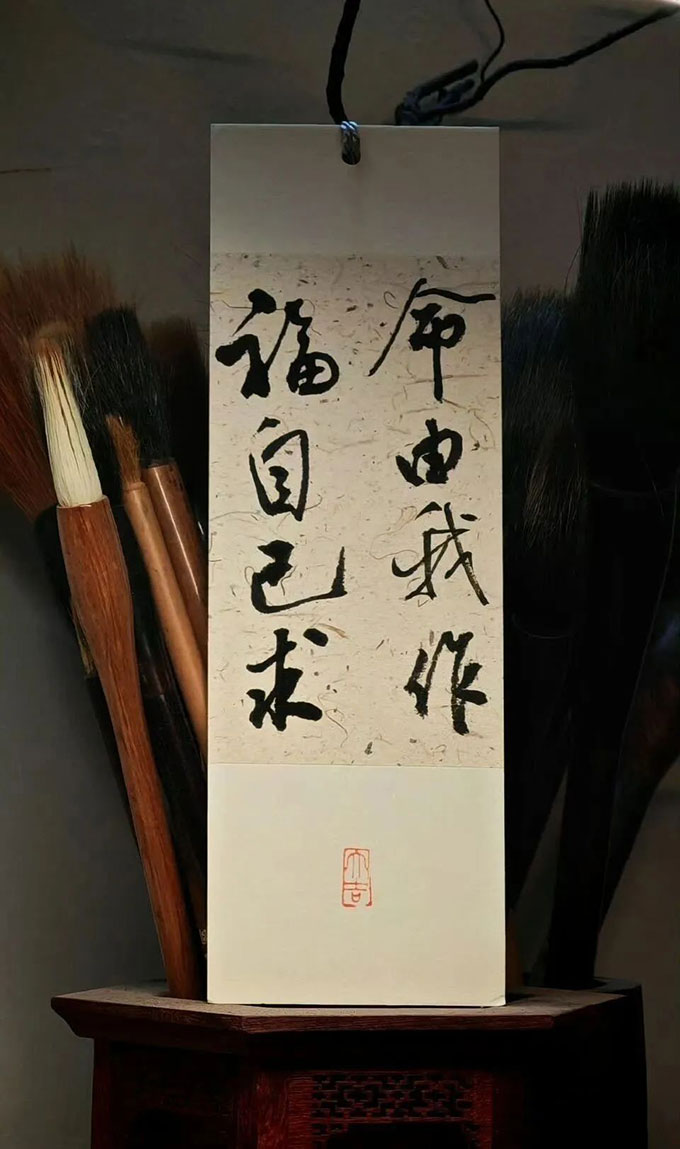 命由我作
福自己求
大吉